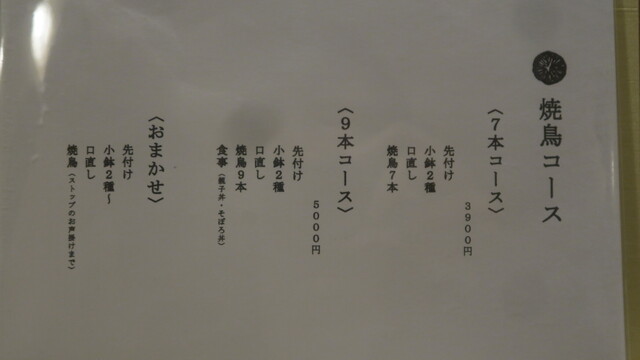 焼鳥コース
〈7本コース〉
3900円
先付け
小鉢2種
口直し
焼鳥7本
〈9本コース〉
5000円
先付け
小鉢2種
口直し
焼鳥9本
食事（親子丼・そぼろ丼）
〈おまかせ〉
先付け
小鉢2種～
口直し
焼鳥（ストップのお声掛けまで）